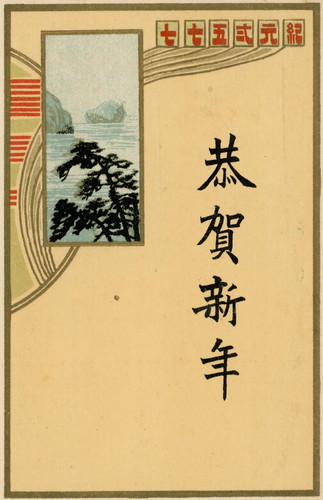 紀元弍五七七
恭賀新年